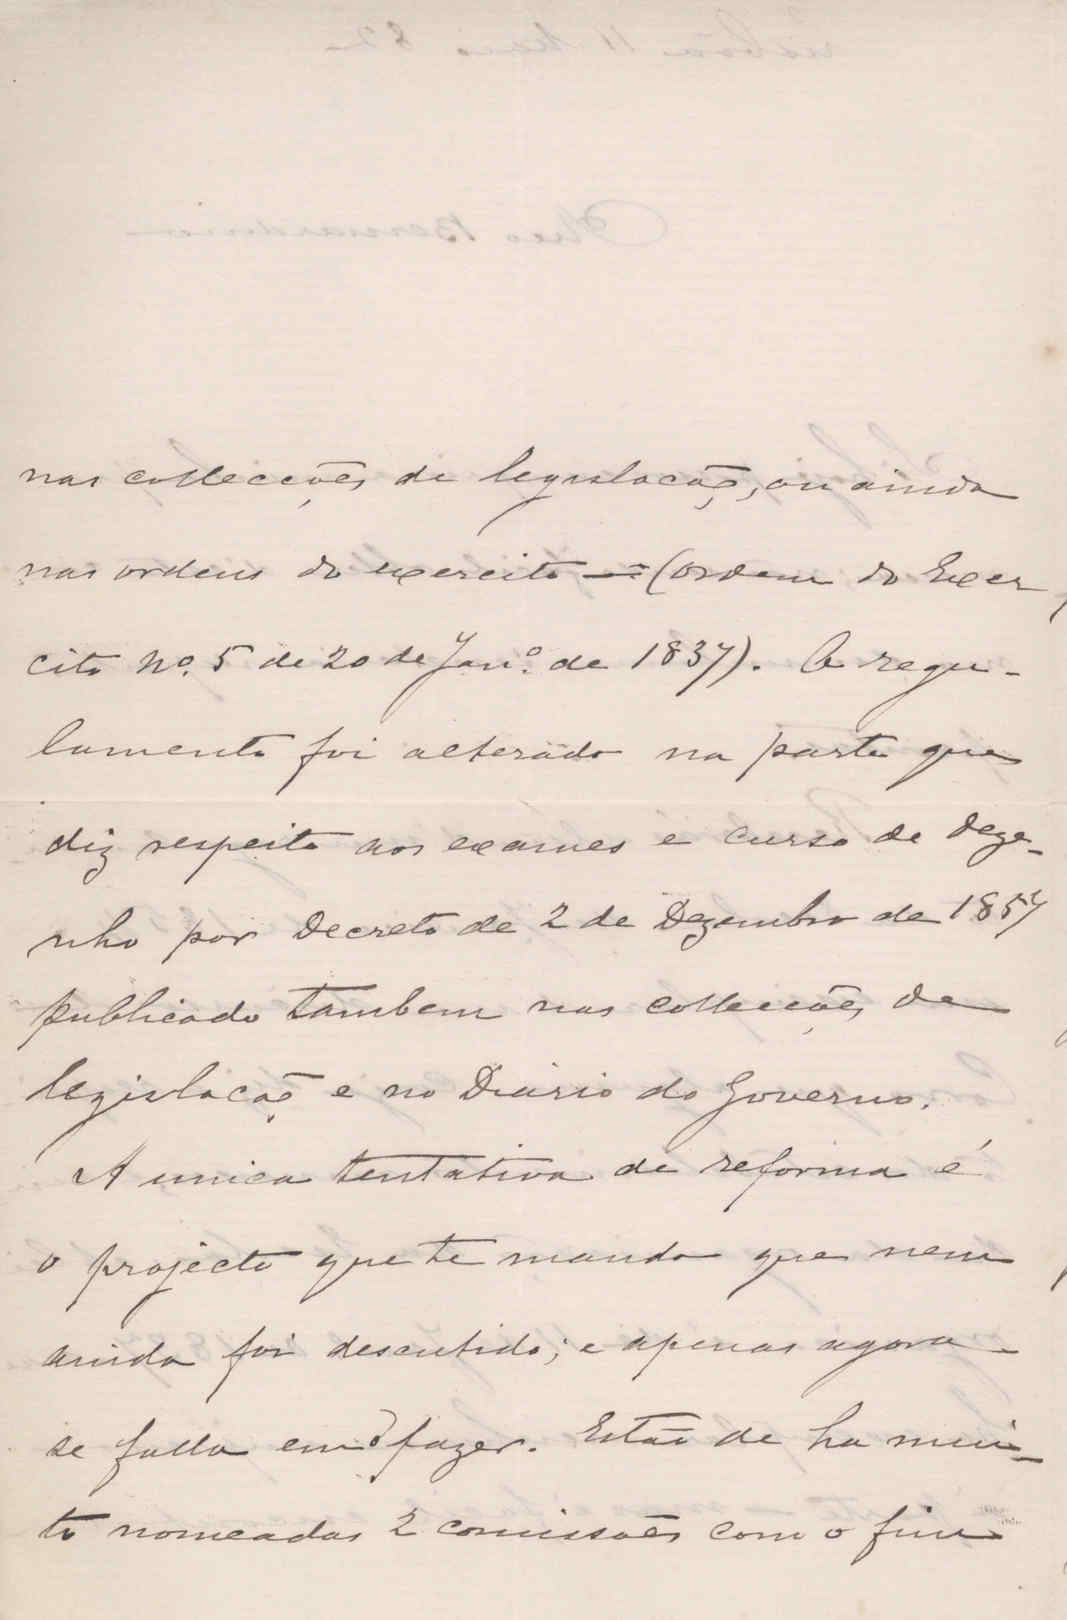 nas collecções de legislação, ou ainda
nas ordens do exercito — (Ordem do Exer
cito nº. 5 de 20 de Janº. de 1837). O regu-
lamento foi alterado na parte que
diz respeito aos exames e curso de deze-
nho por Decreto de 2 de Dezembro de 1857
publicado tambem nas collecções de
legislação e no Diario do Governo.
A unica tentativa de reforma é
o projecto que te mando que nem
ainda foi descutido; e apenas agora
se falla em o fazer. Estão de ha mui-
to nomeadas 2 comissões com o fim